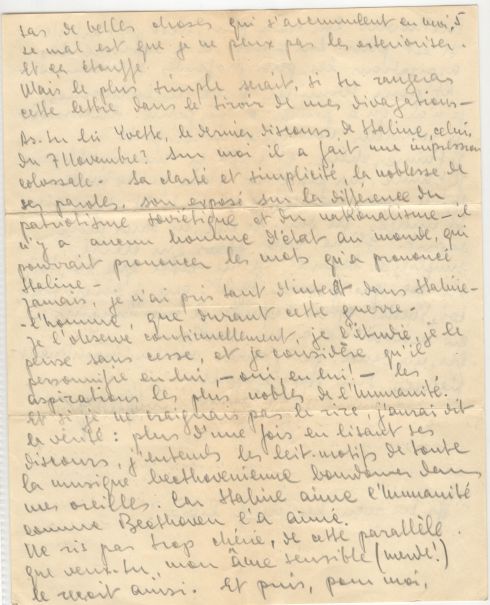 tas de belles choses qui s'accumulent en moi, 5
le mal est que je ne peux pas les exterioriser.
Et ça étouffe.
Mais le plus simple serait, si tu rangeras
cette lettre dans le tiroir de mes divagations —
As-tu lu Yvette, le dernier discours de Staline, celui
du 7 Novembre? Sur moi il a fait une impression
colossale. Sa clarté et simplicité, la noblesse de
ses paroles, son exposé sur la différence du
patriotisme soviétique et du nationalisme — il
n'y a aucun homme d'état au monde, qui
pourrait prononcer les mots qu'a prononcé
Staline —
Jamais, je n'ai pris tant d'intérêt dans Staline-
- l'homme, que durant cette guerre.
Je l'observe continuellement, je l'étudie, je le
pense sans cesse, et je considère qu'il
personnifie en lui, — oui, en lui! — les
aspirations les plus nobles de l'Humanité.
Et si je ne craignais pas le rire, j'aurai dit
la vérité: plus d'une fois en lisant ses
discours, j'entends les leit-motifs de toute
la musique beethovenienne bourdonner dans
mes oreilles. Car Staline aime l'Humanité
comme Beethoven l'a aimé.
Ne ris pas trop chérie, de cette parallèle.
que veux-tu, mon âme sensible (merde!)
le reçoit ainsi. Et puis, pour moi,